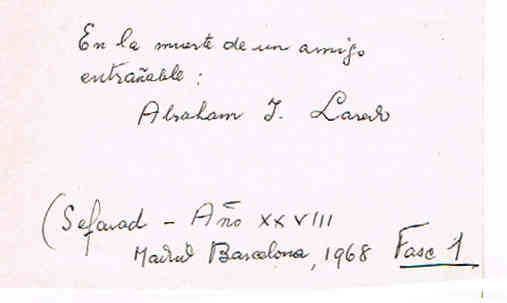 En la muerte de un amigo
entrañable :
Abraham I. Laredo
(Sefarad - Año XXVIII
Madrid Barcelona, 1968 Fasc 1